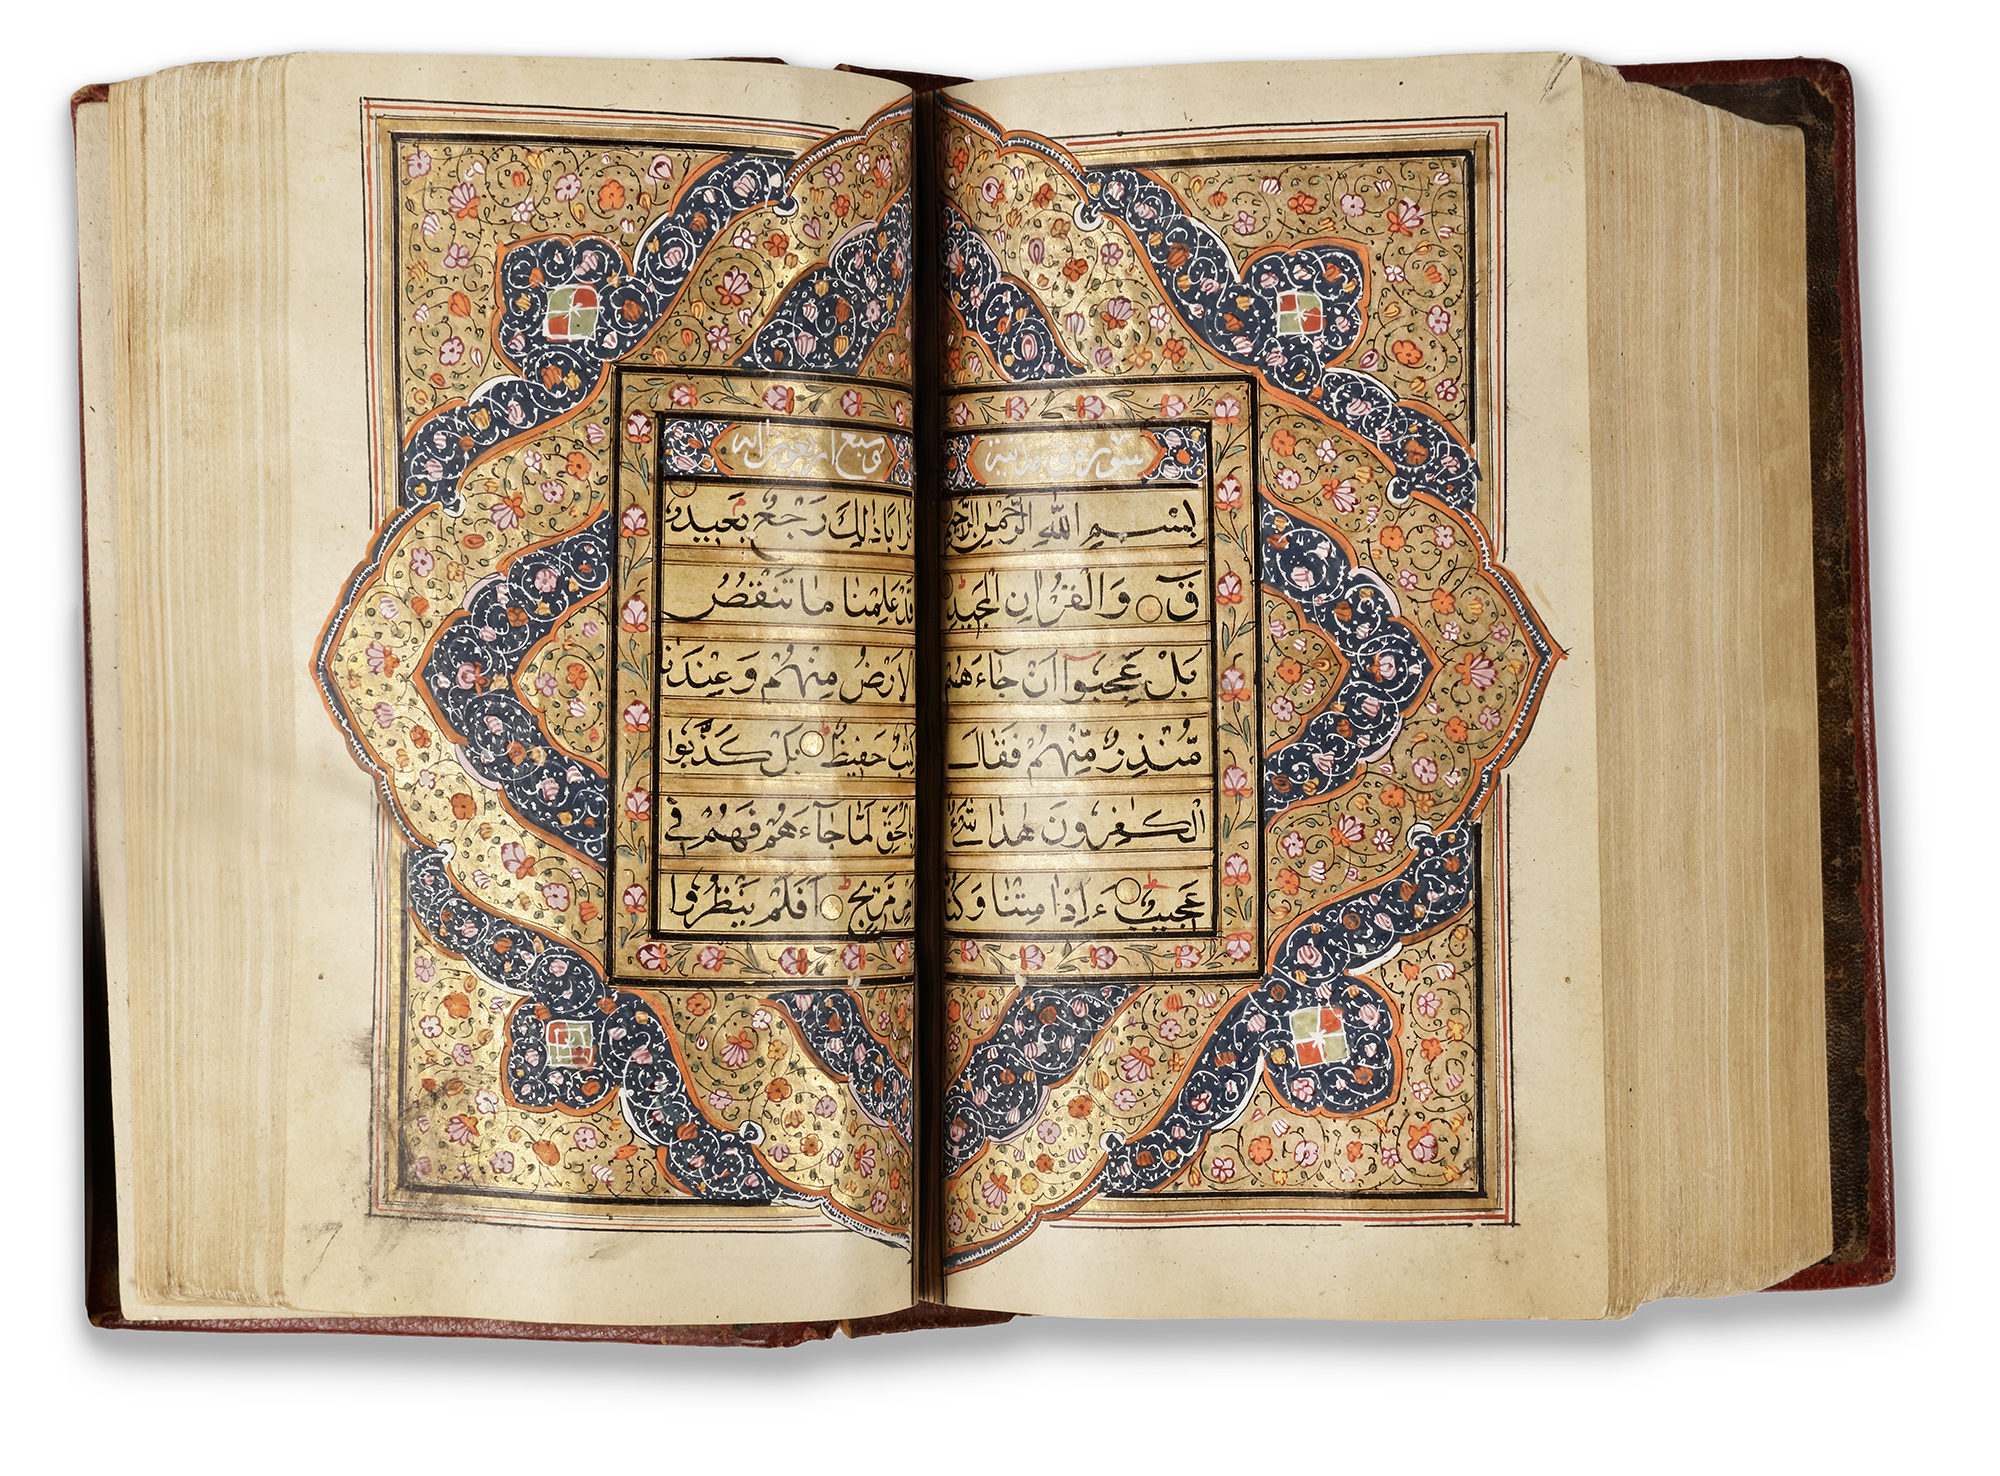 سورة ق
بِسْمِ اللهِ الرَّحْمٰنِ الرَّحِيمِ
قٓ وَالْقُرْاٰنِ الْمَجِيدِ
بَلْ عَجِبُوٓا اَنْ جَآءَهُمْ
مُّنْذِرٌ مِّنْهُمْ فَقَالَ
الْكٰفِرُونَ هٰذَا شَيْءٌ
عَجِيبٌ ءَاِذَا مِتْنَا وَكُنَّا
سبع اربعون ايه
تُرَابًا ذٰلِكَ رَجْعٌ بَعِيدٌ
قَدْ عَلِمْنَا مَا تَنْقُصُ
الْاَرْضُ مِنْهُمْ وَعِنْدَنَا
كِتٰبٌ حَفِيظٌ بَلْ كَذَّبُوا
بِالْحَقِّ لَمَّا جَآءَهُمْ فَهُمْ فِي
اَمْرٍ مَّرِيجٍ اَفَلَمْ يَنْظُرُوٓا